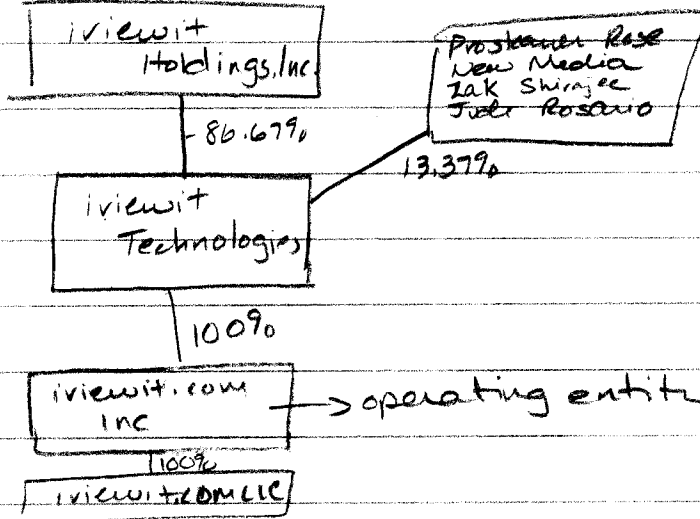 iviewit
Holdings, Inc.
Proskauer Rose
New Media
Zak Shirajee
Jude Rosario
86.67%
13.37%
iviewit
Technologies
100%
iviewit.com
Inc
operating entity
100%
iviewit.com LLC